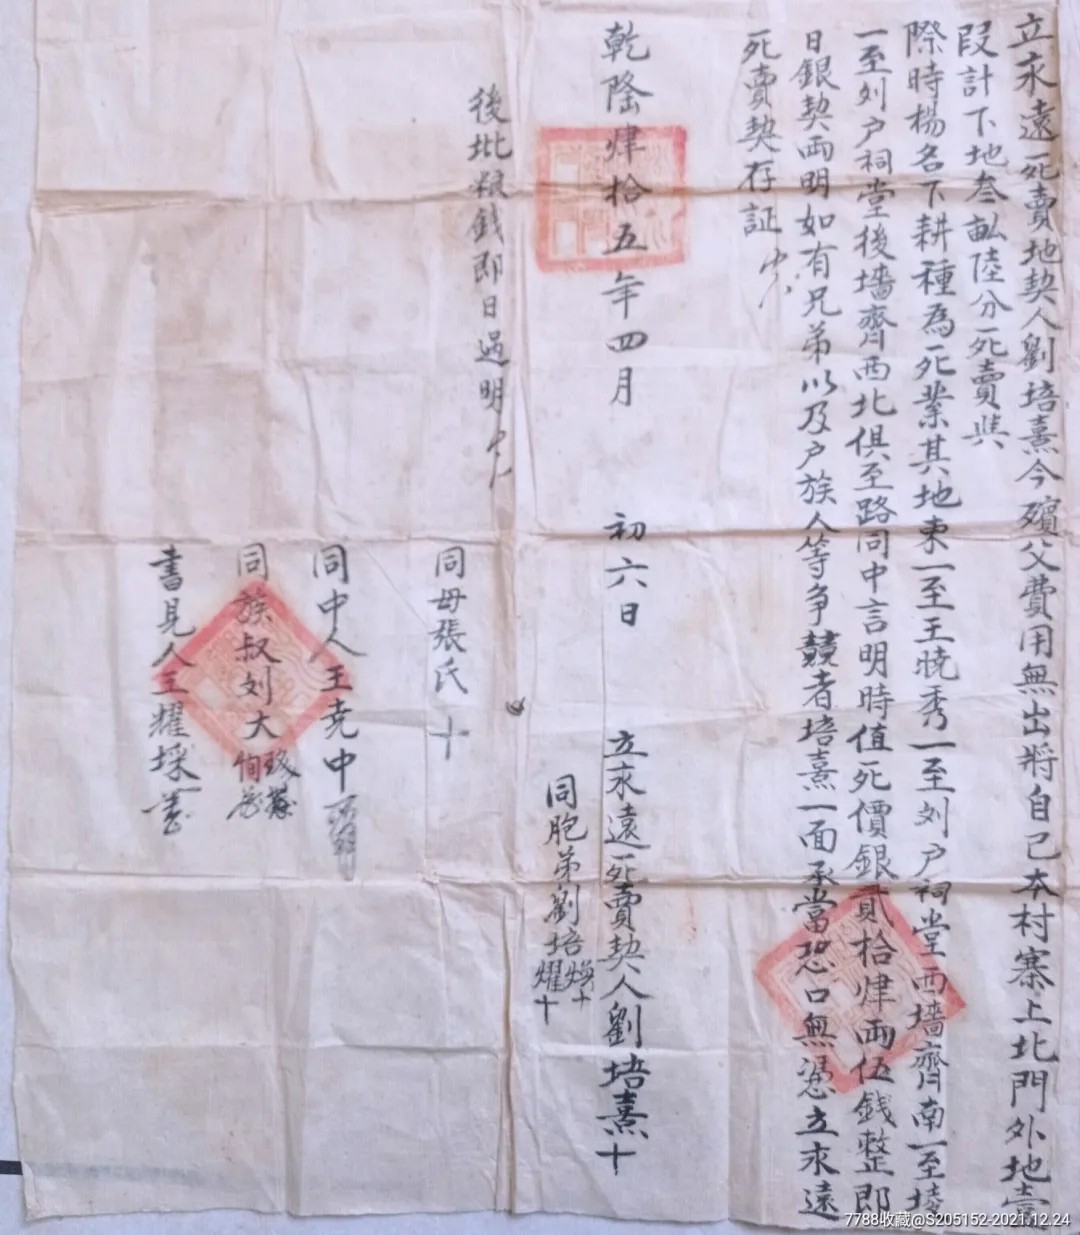 立永遠死賣地契人劉培熹今殯父費用無出將自己本村寨上北門外地壹
段計下地叁畝陸分死賣與
際時楊名下耕種為死業其地東一至王曉秀一至刘户祠堂西墻齊南一至堎
一至刘户祠堂後墻齊西北俱至路同中言明時值死價銀貳拾肆兩伍錢整即
日銀契兩明如有兄弟以及户族人等争競者培熹一面承當恐口無憑立永遠
死賣契存証
乾隆肆拾五年四月 初六日 立永遠死賣契人劉培熹十
同胞弟劉培煥十 耀十
後批粮錢即日過明
同母張氏十
同中人王尭中
同族叔刘大
書見人王耀埰
7788收藏@S205152-2021.12.24